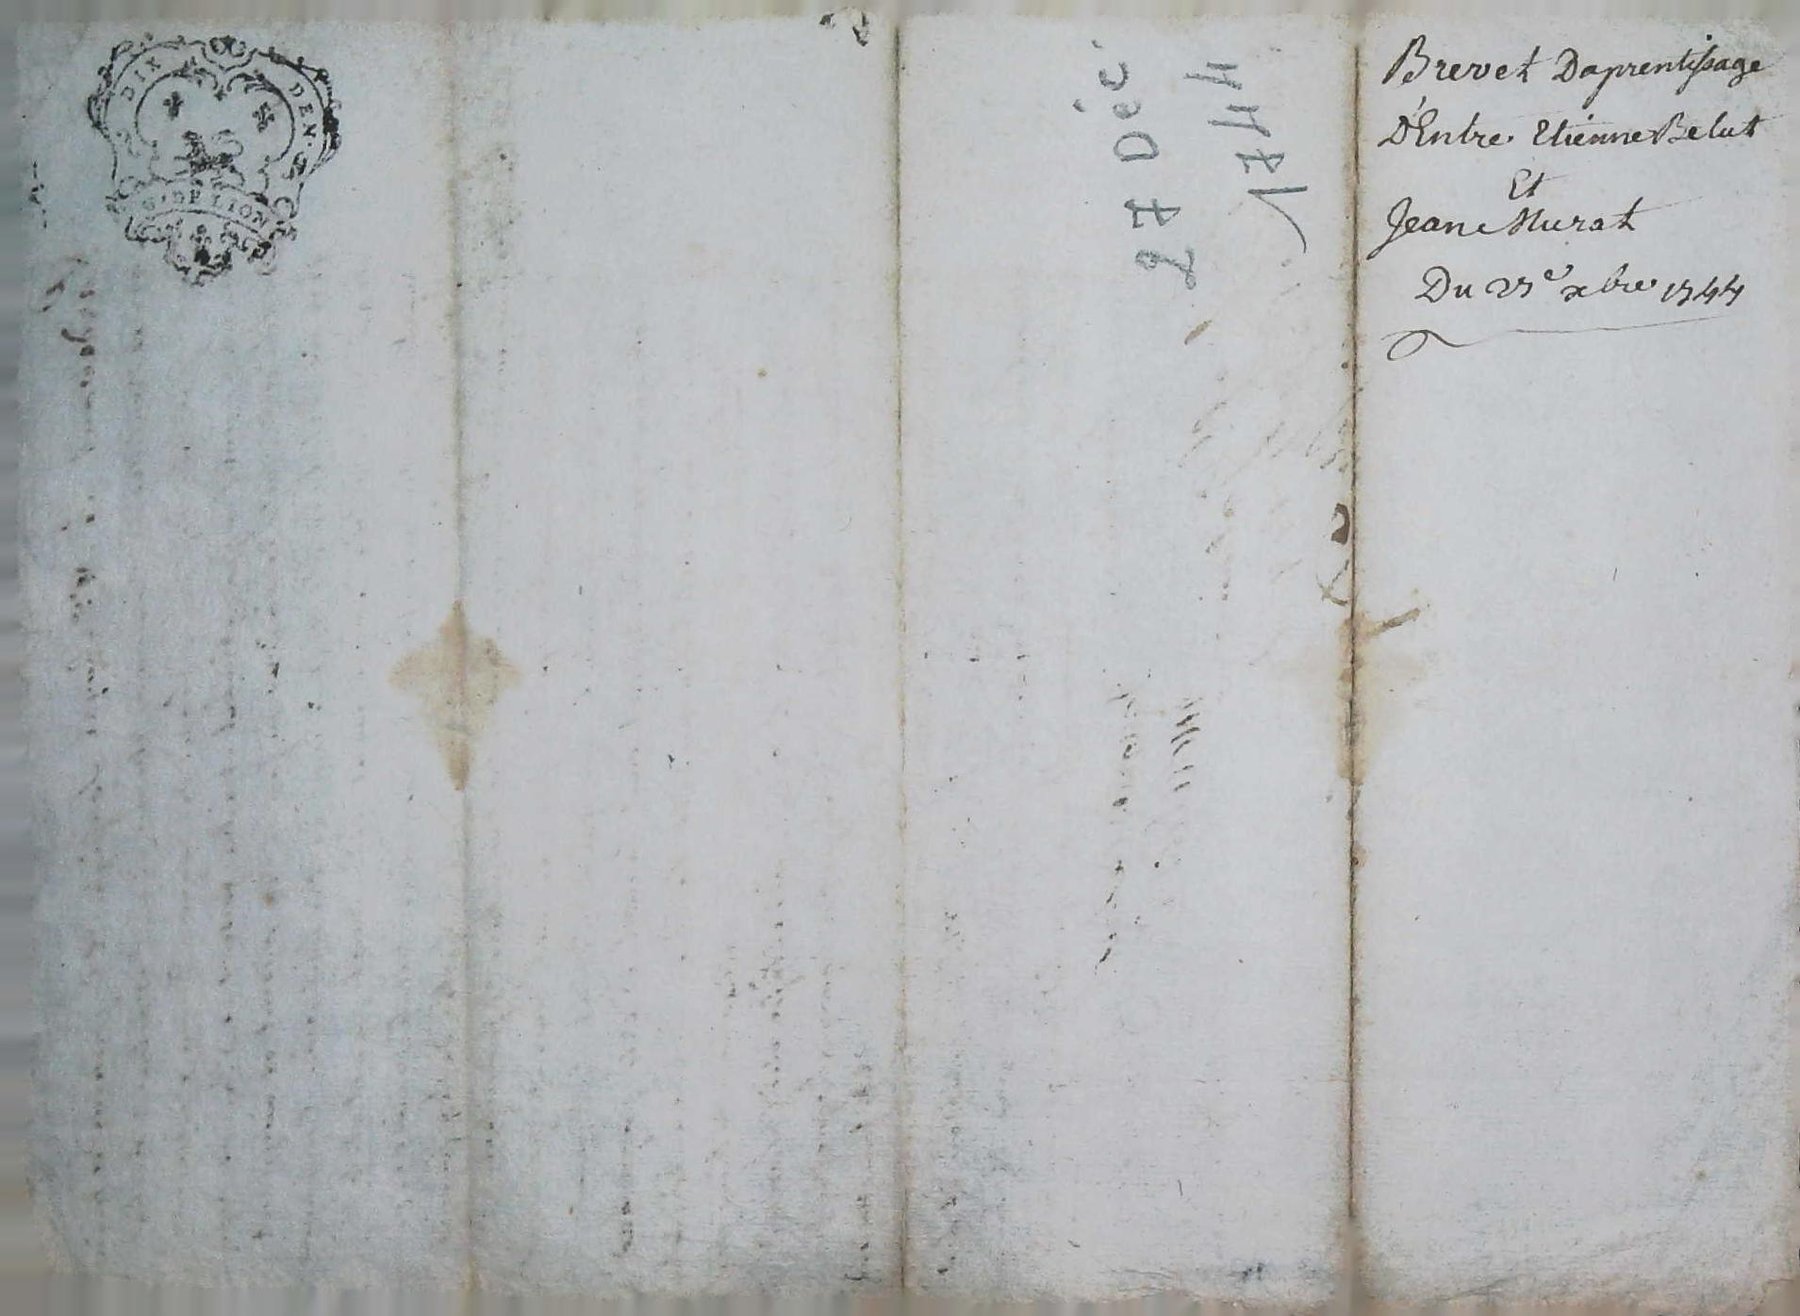 DIX DEN.
G. DE LION
27 Déc.
1744
Brevet Daprentissage
D'Entre Etienne Belut
Et
Jean Murat
Du 27e xbre 1744